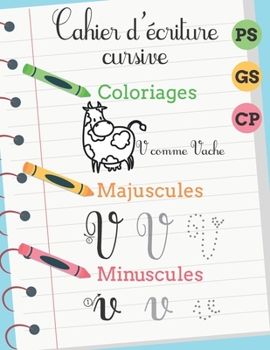 Cahier d'écriture
cursive
PS
GS
CP
Coloriages
V comme Vache
Majuscules
V V V
Minuscules
v v v